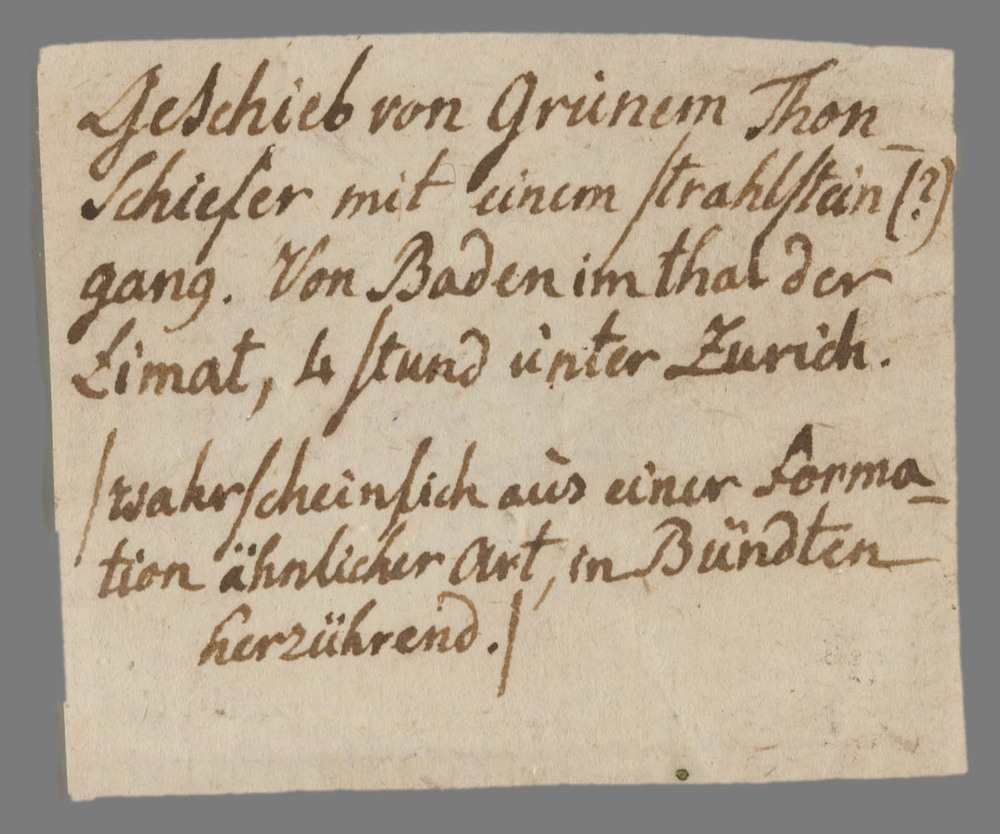 Geschieb von Grünem Thon_
Schiefer mit einem strahlstein (?)
gang. Von Baden im thal der
Limat, 4 stund unter Zurich.
/wahrscheinlich aus einer Forma_
tion ähnlicher Art, in Bündten
herrührend./